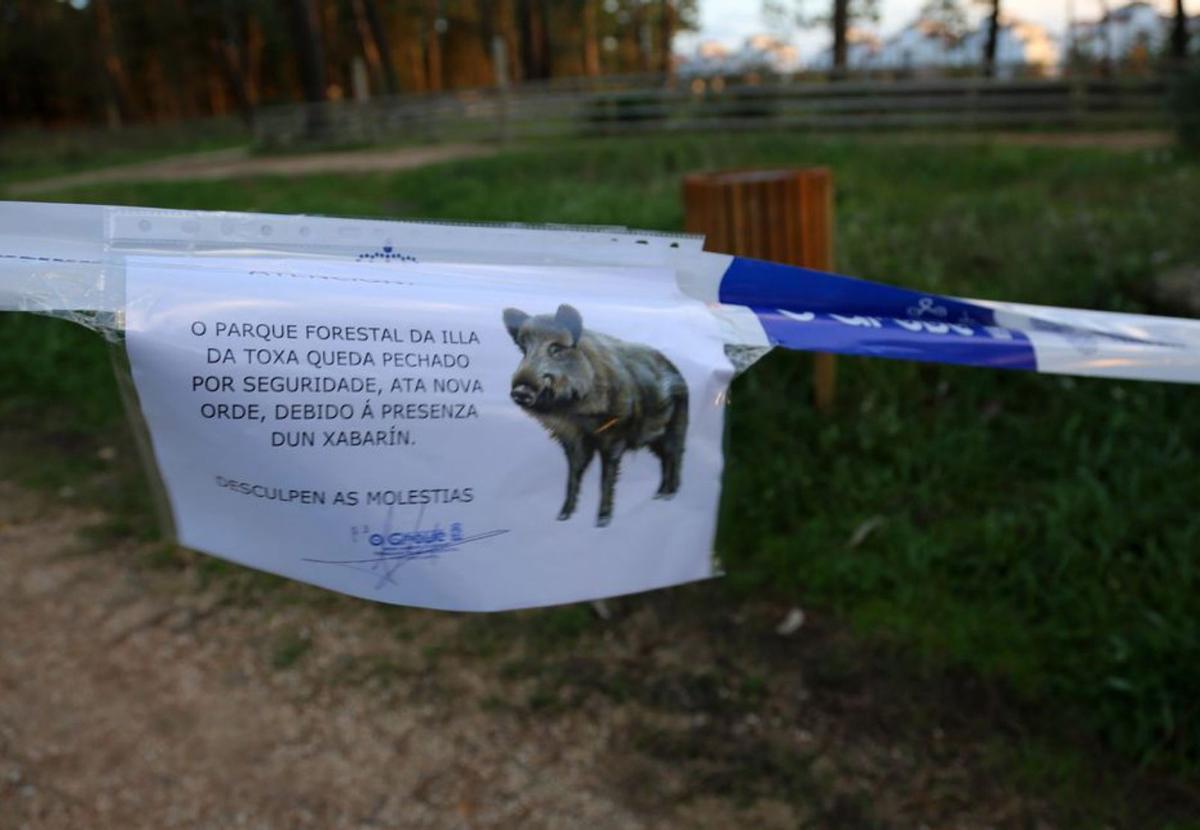 O PARQUE FORESTAL DA ILLA
DA TOXA QUEDA PECHADO
POR SEGURIDADE, ATA NOVA
ORDE, DEBIDO Á PRESENZA
DUN XABARÍN.
DESCULPEN AS MOLESTIAS